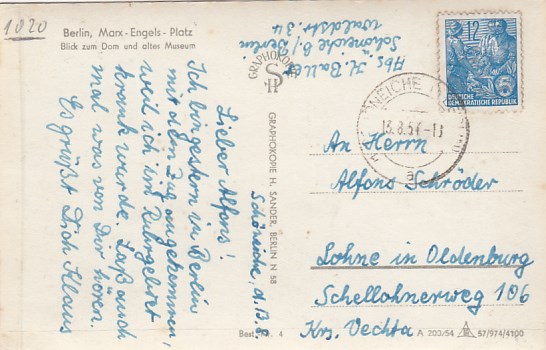 1020
Berlin, Marx-Engels-Platz
Blick zum Dom und altes Museum
Abs. K. Balk
Schöneiche b/Berlin
Waldstr. 34
Schöneiche, d. 13.8.
Lieber Alfons!
Ich bin gestern in Berlin
mit dem Zug angekommen,
weil ich im Ruhrgebiet
krank wurde. Laß auch
mal was von Dir hören.
Es grüßt Dich Klaus
GRAPHOKOPIE
GRAPHOKOPIE H. SANDER, BERLIN N 58
Best. Nr. 4
12
DEUTSCHE
DEMOKRATISCHE REPUBLIK
NEICHE
13.8.54-18
a
An Herrn
Alfons Schröder
Lohne in Oldenburg
Schellohnerweg 106
Krs. Vechta
A 203/54
57/974/4100